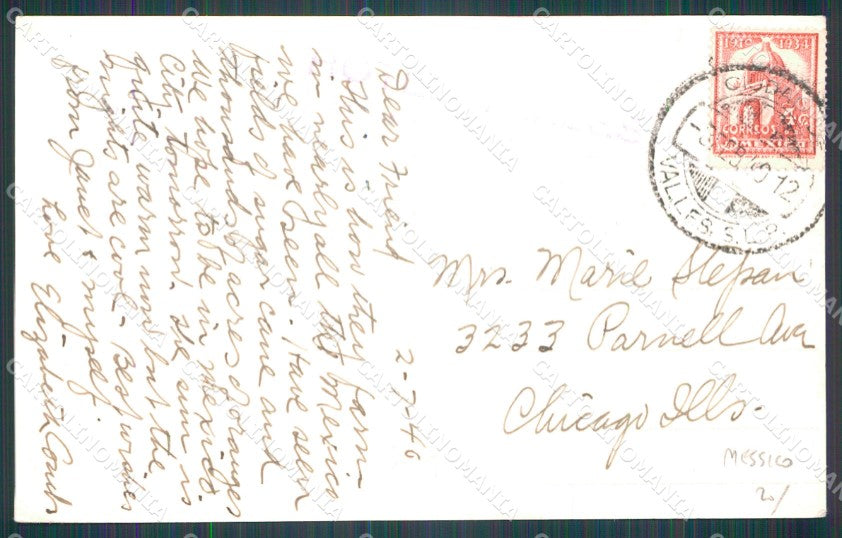 2-7-46
Dear Friend
This is how they farm
in nearly all the Mexico
we have seen. Have seen
fields of sugar cane and
thousands of acres of oranges
We hope to be in Mexico
City tomorrow. The sun is
quit warm now but the
nights are cool - Best wishes
from Janet & myself
Love Elizabeth
Mrs. Marie Stepan
3233 Parnell Ave
Chicago Ills.
MESSICO
20/
1934
CORREOS
MEXICO
12
VALLES, S.L.P.
CARTOLINOMANIA